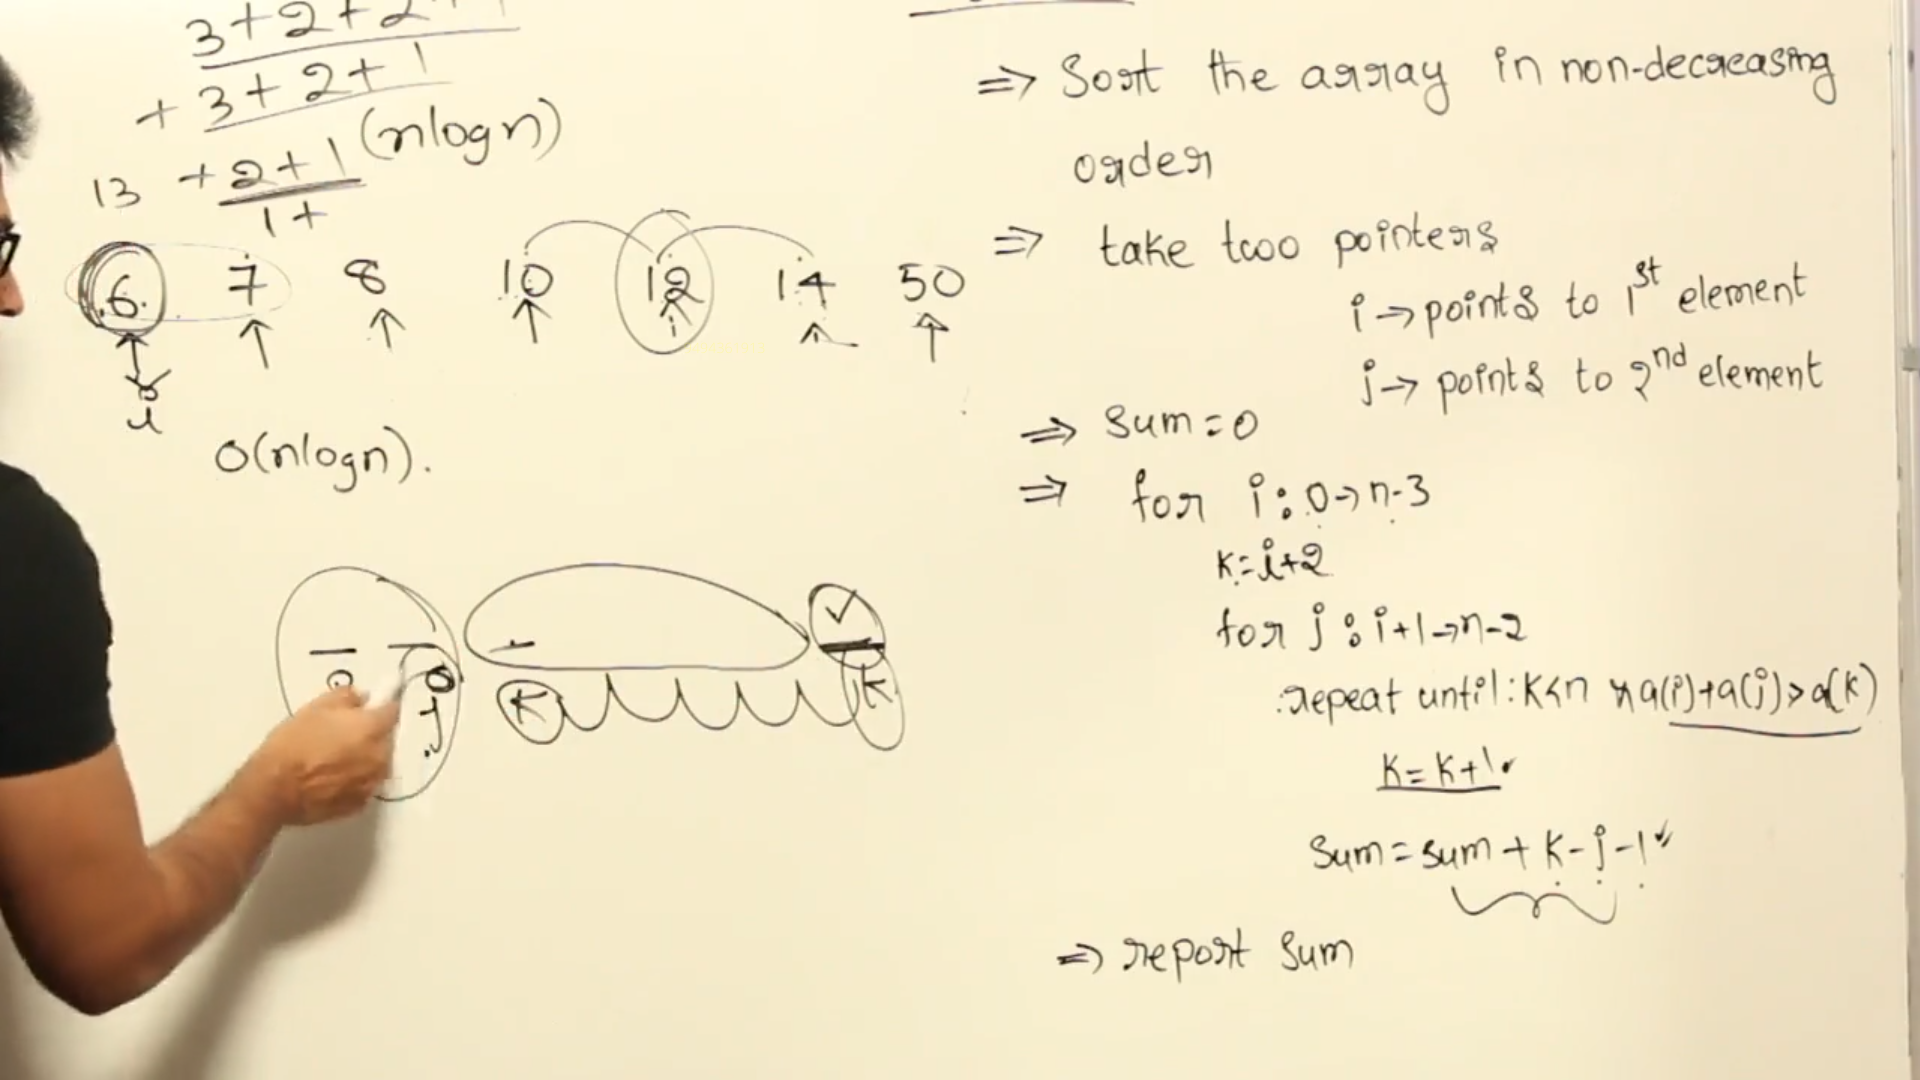 3+2+2+1
+ 3+2+1
(nlogn)
13 +2+1
1+
6 7 8 10 12 14 50
i
O(nlogn).
j
K K
=> Sort the array in non-decreasing
order
=> take two pointers
i -> points to 1st element
j -> points to 2nd element
=> Sum = 0
=> for i : 0 -> n-3
K = i+2
for j : i+1 -> n-2
repeat until : K<n && a(i)+a(j)>a(K)
K = K+1
Sum = sum + K-j-1
=> report sum